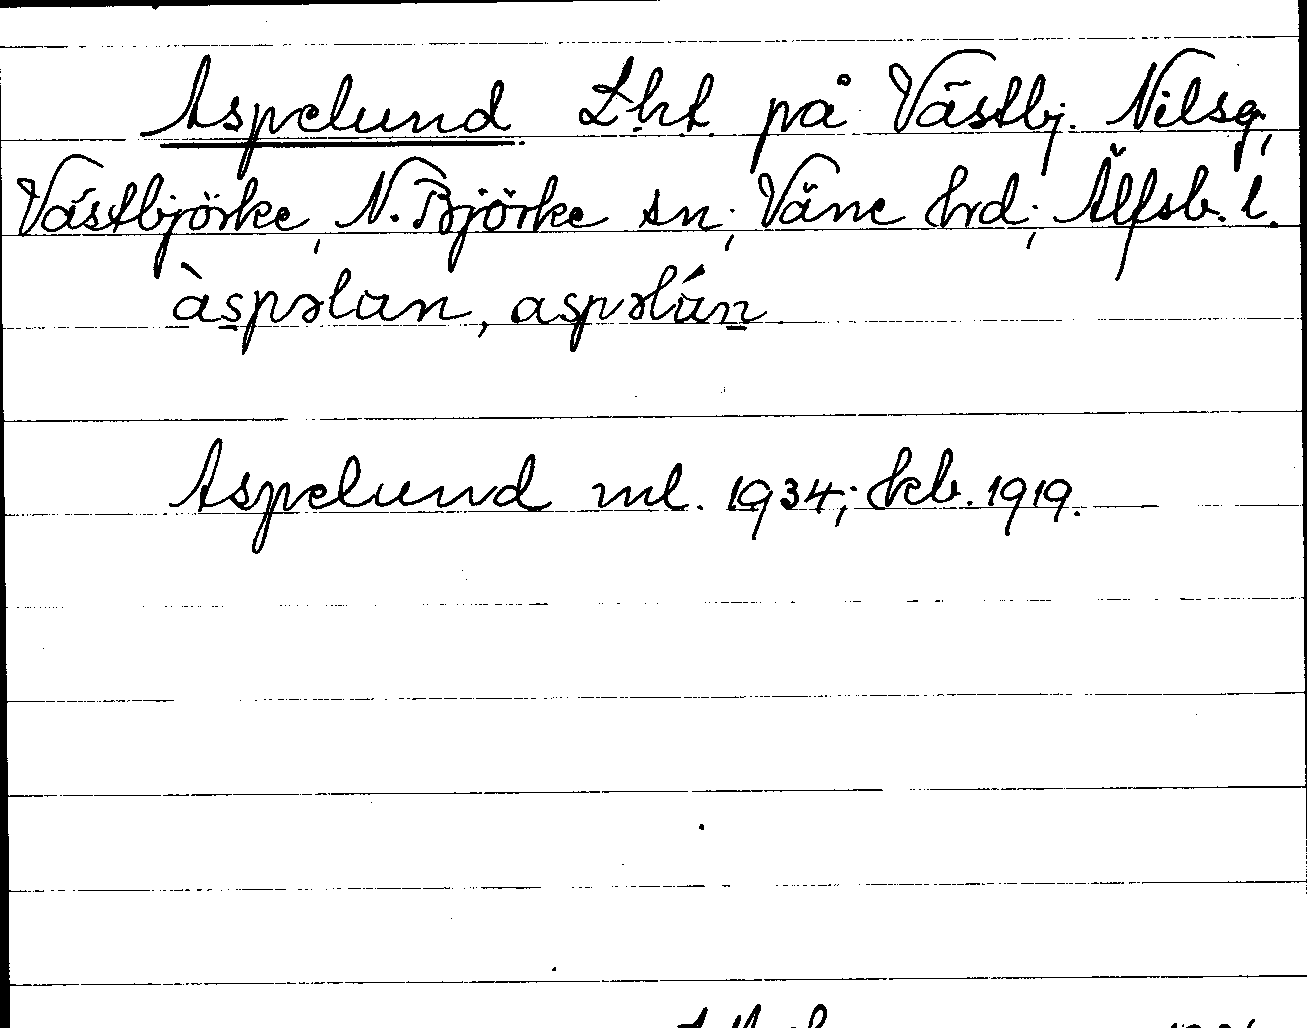 Aspelund Lht på Västbj. Nilsg,
Västbjörke, N. Björke sn; Väne hrd; Älfsb. l.
àspəlan, aspəlán
Aspelund ml. 1934; kb. 1919.